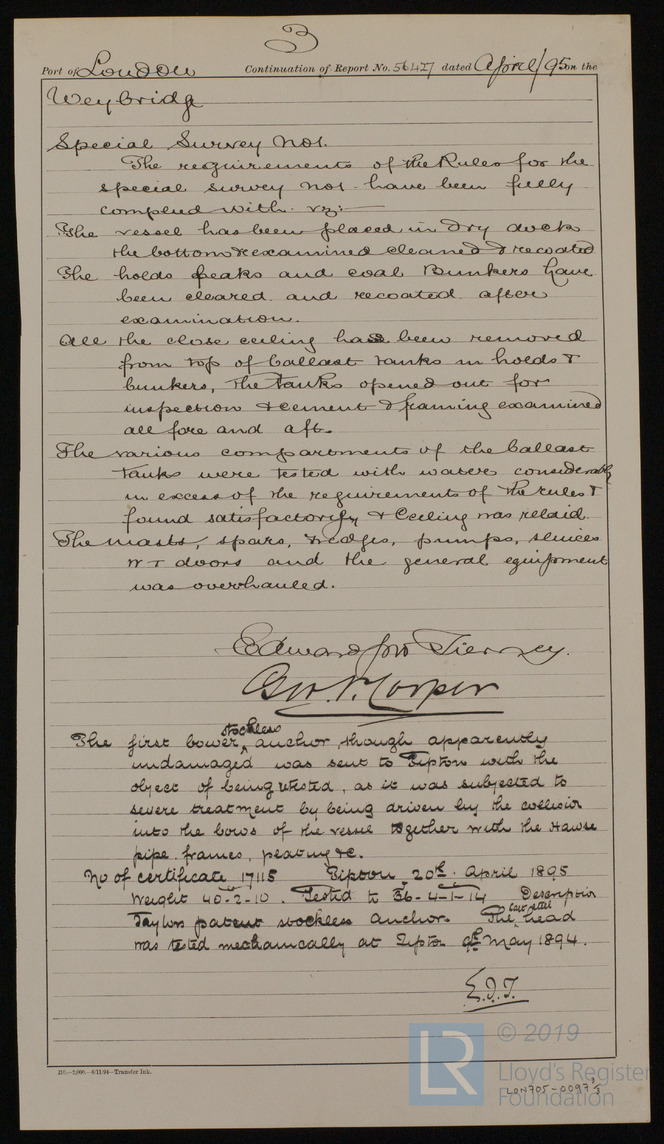 3
Port of London Continuation of Report No. 56427 dated April/95 on the
Weybridge
Special Survey No1.
The requirements of the Rules for the
special survey No1 have been fully
complied with. viz:—
The vessel has been placed in dry dock
the bottom examined cleaned & recoated
The holds peaks and coal Bunkers have
been cleared and recoated after
examination.
All the close ceiling has been removed
from top of ballast tanks in holds &
bunkers, the tanks opened out for
inspection & cement & framing examined
all fore and aft.
The various compartments of the ballast
tanks were tested with water considerably
in excess of the requirements of the rules &
found satisfactory & Ceiling was relaid.
The masts, spars, wedges, pumps, sluices
W T doors and the general equipment
was overhauled.
Edward Jno Tierney.
Geo. V. Corper
The first bower stockless anchor, though apparently
undamaged was sent to Tipton with the
object of being retested, as it was subjected to
severe treatment by being driven by the collision
into the bows of the vessel together with the Hawse
pipe, frames, plating &c.
No of certificate 17115 Tipton 20th April 1895
Weight 40-2-10. Tested to 36-4-1-14 Description
Taylors patent stockless anchor. The cast steel head
was tested mechanically at Tipton 9th May 1894.
E.J.T.
210.—2,000.—6/11/94—Transfer Ink.
LR © 2019
Lloyd's Register
Foundation
LON705-0097